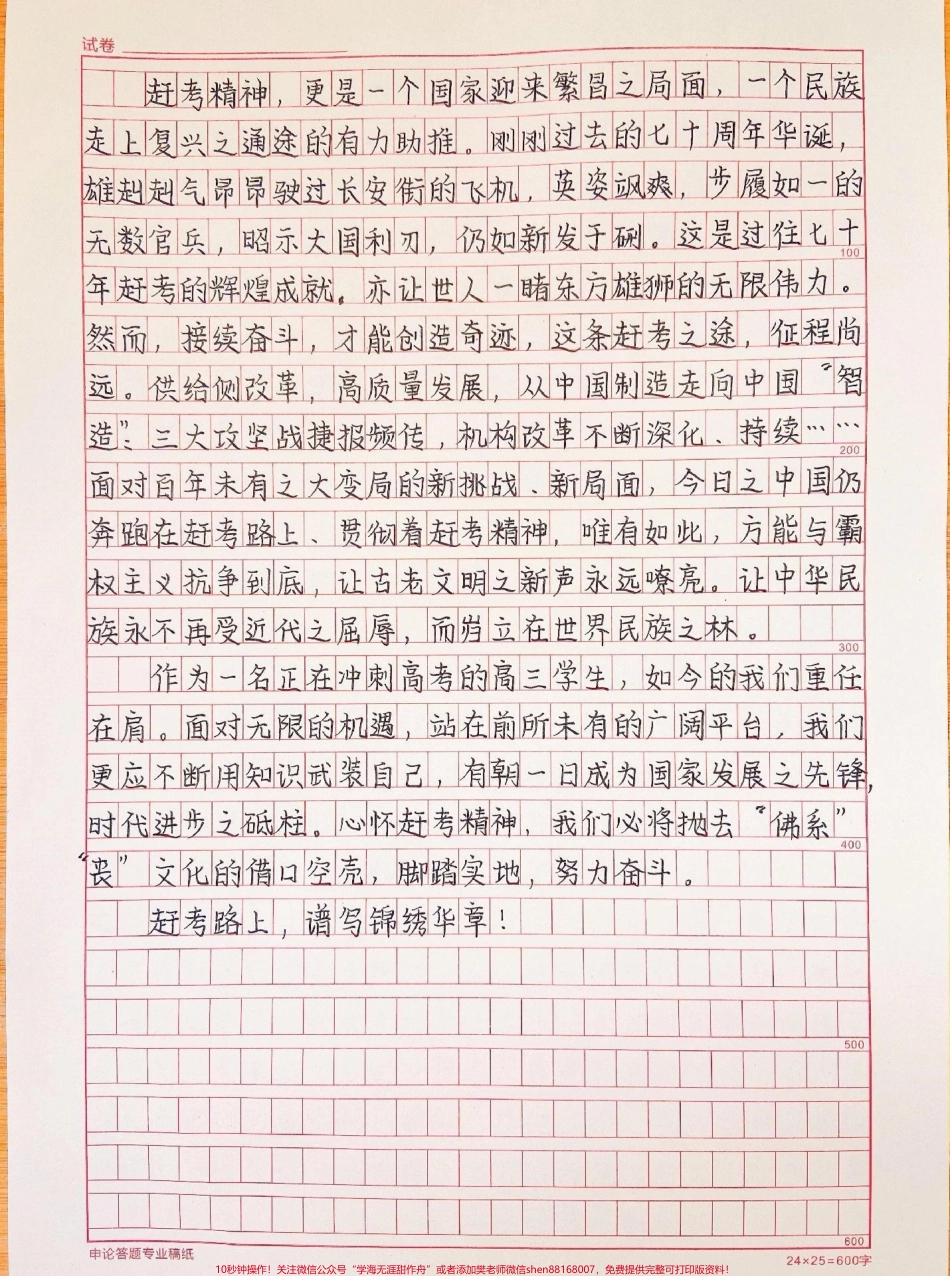 试卷
赶考精神，更是一个国家迎来繁昌之局面，一个民族
走上复兴之通途的有力助推。刚刚过去的七十周年华诞，
雄赳赳气昂昂驶过长安街的飞机，英姿飒爽，步履如一的
无数官兵，昭示大国利刃，仍如新发于硎。这是过往七十
100
年赶考的辉煌成就。亦让世人一睹东方雄狮的无限伟力。
然而，接续奋斗，才能创造奇迹，这条赶考之途，征程尚
远。供给侧改革，高质量发展，从中国制造走向中国“智
造”；三大攻坚战捷报频传，机构改革不断深化、持续……
200
面对百年未有之大变局的新挑战、新局面，今日之中国仍
奔跑在赶考路上、贯彻着赶考精神，唯有如此，方能与霸
权主义抗争到底，让古老文明之新声永远嘹亮。让中华民
族永不再受近代之屈辱，而岿立在世界民族之林。
300
作为一名正在冲刺高考的高三学生，如今的我们重任
在肩。面对无限的机遇，站在前所未有的广阔平台，我们
更应不断用知识武装自己，有朝一日成为国家发展之先锋，
时代进步之砥柱。心怀赶考精神，我们必将抛去“佛系”
400
“丧”文化的借口空壳，脚踏实地，努力奋斗。
赶考路上，谱写锦绣华章！
500
600
申论答题专业稿纸
24×25=600字
10秒钟操作！关注微信公众号“学海无涯甜作舟”或者添加樊老师微信shen88168007，免费提供完整可打印版资料！